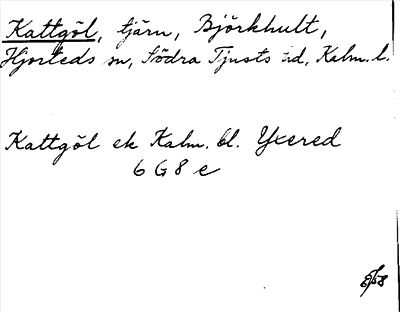 Kattgöl, tjärn, Björkhult,
Hjorteds sn, Södra Tjusts hd, Kalm. l.
Kattgöl ek Kalm. bl. Yxered
6 G 8 e